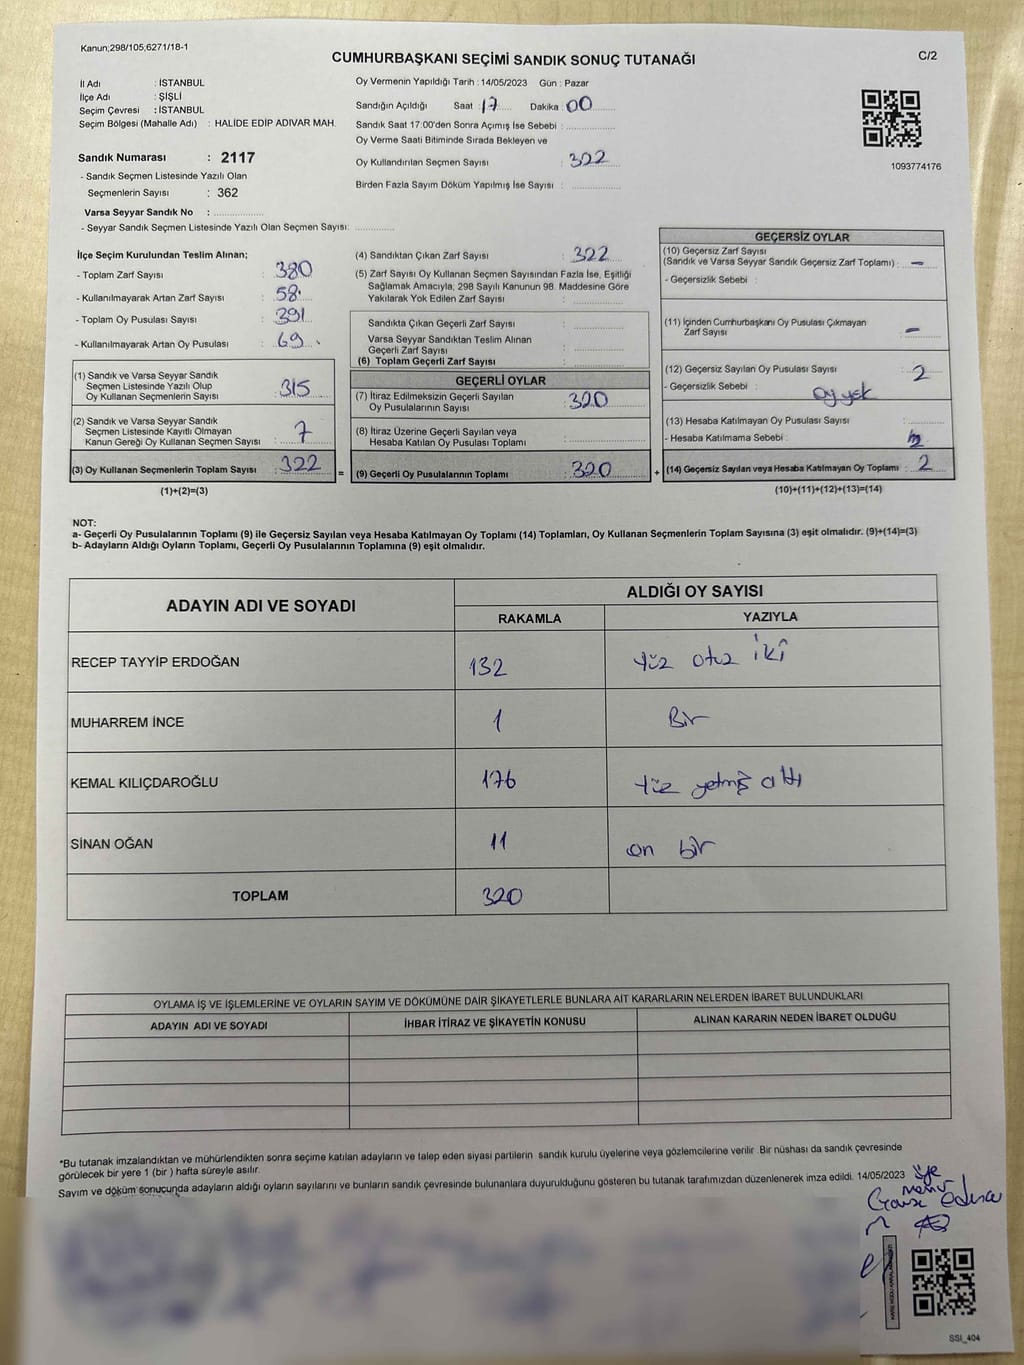 Kanun;298/105,6271/18-1
CUMHURBAŞKANI SEÇİMİ SANDIK SONUÇ TUTANAĞI
C/2
İl Adı : İSTANBUL
İlçe Adı : ŞİŞLİ
Seçim Çevresi : İSTANBUL
Seçim Bölgesi (Mahalle Adı) : HALİDE EDİP ADIVAR MAH.
Sandık Numarası : 2117
- Sandık Seçmen Listesinde Yazılı Olan
Seçmenlerin Sayısı : 362
Varsa Seyyar Sandık No :
- Seyyar Sandık Seçmen Listesinde Yazılı Olan Seçmen Sayısı:
Oy Vermenin Yapıldığı Tarih : 14/05/2023 Gün : Pazar
Sandığın Açıldığı Saat : 17 Dakika : 00
Sandık Saat 17:00'den Sonra Açımış İse Sebebi :
Oy Verme Saati Bitiminde Sırada Bekleyen ve
Oy Kullandırılan Seçmen Sayısı : 322
Birden Fazla Sayım Döküm Yapılmış İse Sayısı :
1093774176
İlçe Seçim Kurulundan Teslim Alınan;
- Toplam Zarf Sayısı : 380
- Kullanılmayarak Artan Zarf Sayısı : 58
- Toplam Oy Pusulası Sayısı : 391
- Kullanılmayarak Artan Oy Pusulası : 69
(1) Sandık ve Varsa Seyyar Sandık
Seçmen Listesinde Yazılı Olup
Oy Kullanan Seçmenlerin Sayısı : 315
(2) Sandık ve Varsa Seyyar Sandık
Seçmen Listesinde Kayıtlı Olmayan
Kanun Gereği Oy Kullanan Seçmen Sayısı : 7
(3) Oy Kullanan Seçmenlerin Toplam Sayısı : 322
(1)+(2)=(3)
(4) Sandıktan Çıkan Zarf Sayısı : 322
(5) Zarf Sayısı Oy Kullanan Seçmen Sayısından Fazla İse, Eşitliği
Sağlamak Amacıyla, 298 Sayılı Kanunun 98. Maddesine Göre
Yakılarak Yok Edilen Zarf Sayısı :
Sandıkta Çıkan Geçerli Zarf Sayısı :
Varsa Seyyar Sandıktan Teslim Alınan
Geçerli Zarf Sayısı :
(6) Toplam Geçerli Zarf Sayısı :
GEÇERLİ OYLAR
(7) İtiraz Edilmeksizin Geçerli Sayılan
Oy Pusulalarının Sayısı : 320
(8) İtiraz Üzerine Geçerli Sayılan veya
Hesaba Katılan Oy Pusulası Toplamı :
= (9) Geçerli Oy Pusulalarının Toplamı : 320 +
GEÇERSİZ OYLAR
(10) Geçersiz Zarf Sayısı
(Sandık ve Varsa Seyyar Sandık Geçersiz Zarf Toplamı) : –
- Geçersizlik Sebebi :
(11) İçinden Cumhurbaşkanı Oy Pusulası Çıkmayan
Zarf Sayısı : –
(12) Geçersiz Sayılan Oy Pusulası Sayısı : 2
- Geçersizlik Sebebi :
(13) Hesaba Katılmayan Oy Pusulası Sayısı :
- Hesaba Katılmama Sebebi :
(14) Geçersiz Sayılan veya Hesaba Katılmayan Oy Toplamı : 2
(10)+(11)+(12)+(13)=(14)
NOT:
a- Geçerli Oy Pusulalarının Toplamı (9) ile Geçersiz Sayılan veya Hesaba Katılmayan Oy Toplamı (14) Toplamları, Oy Kullanan Seçmenlerin Toplam Sayısına (3) eşit olmalıdır. (9)+(14)=(3)
b- Adayların Aldığı Oyların Toplamı, Geçerli Oy Pusulalarının Toplamına (9) eşit olmalıdır.
ADAYIN ADI VE SOYADI
ALDIĞI OY SAYISI
RAKAMLA YAZIYLA
RECEP TAYYİP ERDOĞAN 132 Yüz otuz iki
MUHARREM İNCE 1 Bir
KEMAL KILIÇDAROĞLU 176 Yüz yetmiş altı
SİNAN OĞAN 11 on bir
TOPLAM 320
OYLAMA İŞ VE İŞLEMLERİNE VE OYLARIN SAYIM VE DÖKÜMÜNE DAİR ŞİKAYETLERLE BUNLARA AİT KARARLARIN NELERDEN İBARET BULUNDUKLARI
ADAYIN ADI VE SOYADI İHBAR İTİRAZ VE ŞİKAYETİN KONUSU ALINAN KARARIN NEDEN İBARET OLDUĞU
*Bu tutanak imzalandıktan ve mühürlendikten sonra seçime katılan adayların ve talep eden siyasi partilerin sandık kurulu üyelerine veya gözlemcilerine verilir. Bir nüshası da sandık çevresinde
görülecek bir yere 1 (bir ) hafta süreyle asılır.
Sayım ve döküm sonucunda adayların aldığı oyların sayılarını ve bunların sandık çevresinde bulunanlara duyurulduğunu gösteren bu tutanak tarafımızdan düzenlenerek imza edildi. 14/05/2023
üye
SSI_404